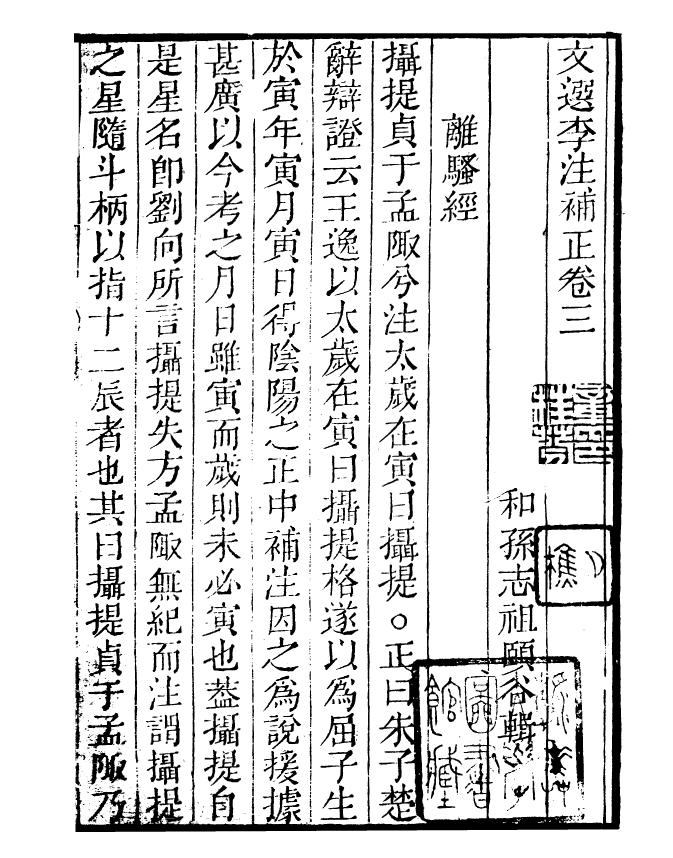 文選李注補正卷三
和孫志祖頤谷輯
離騷經
攝提貞于孟陬兮注太歲在寅曰攝提○正曰朱子楚
辭辯證云王逸以太歲在寅曰攝提格遂以爲屈子生
於寅年寅月寅日得陰陽之正中補注因之爲說援據
甚廣以今考之月日雖寅而歲則未必寅也葢攝提自
是星名卽劉向所言攝提失方孟陬無紀而注謂攝提
之星隨斗柄以指十二辰者也其曰攝提貞于孟陬乃